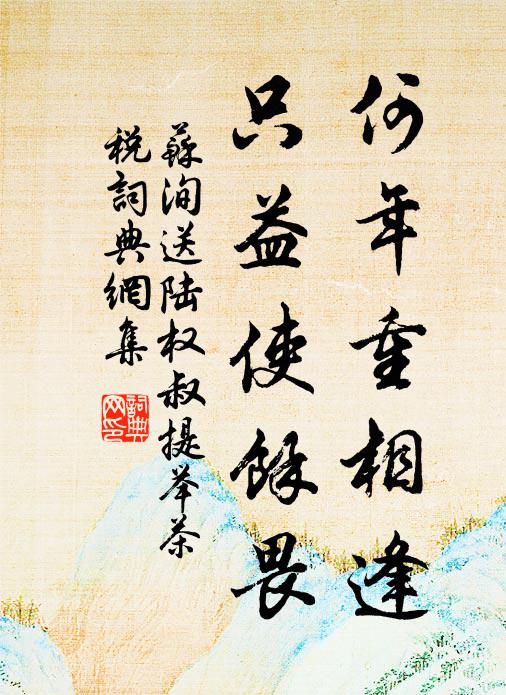 何年重相逢
只益使餘畏
蘇洵送陆权叔提举茶
税詞典網集
詞典
网印